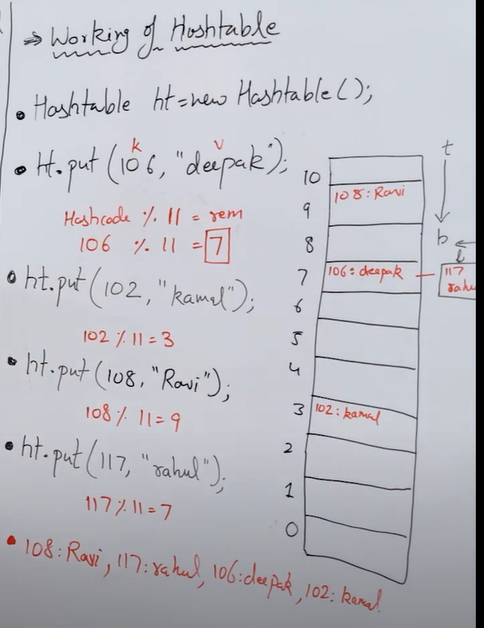 ⇒ Working of Hashtable
• Hashtable ht=new Hashtable();
k v
• Ht.put(106, "deepak");
Hashcode % 11 = rem
106 % 11 = 7
• ht.put(102, "kamal");
102 % 11 = 3
• ht.put(108, "Ravi");
108 % 11 = 9
• ht.put(117, "rahul");
117 % 11 = 7
• 108: Ravi, 117: rahul, 106: deepak, 102: kamal
10
9 108: Ravi
8
7 106: deepak
6
5
4
3 102: kamal
2
1
0
t
b
l
117
rahu